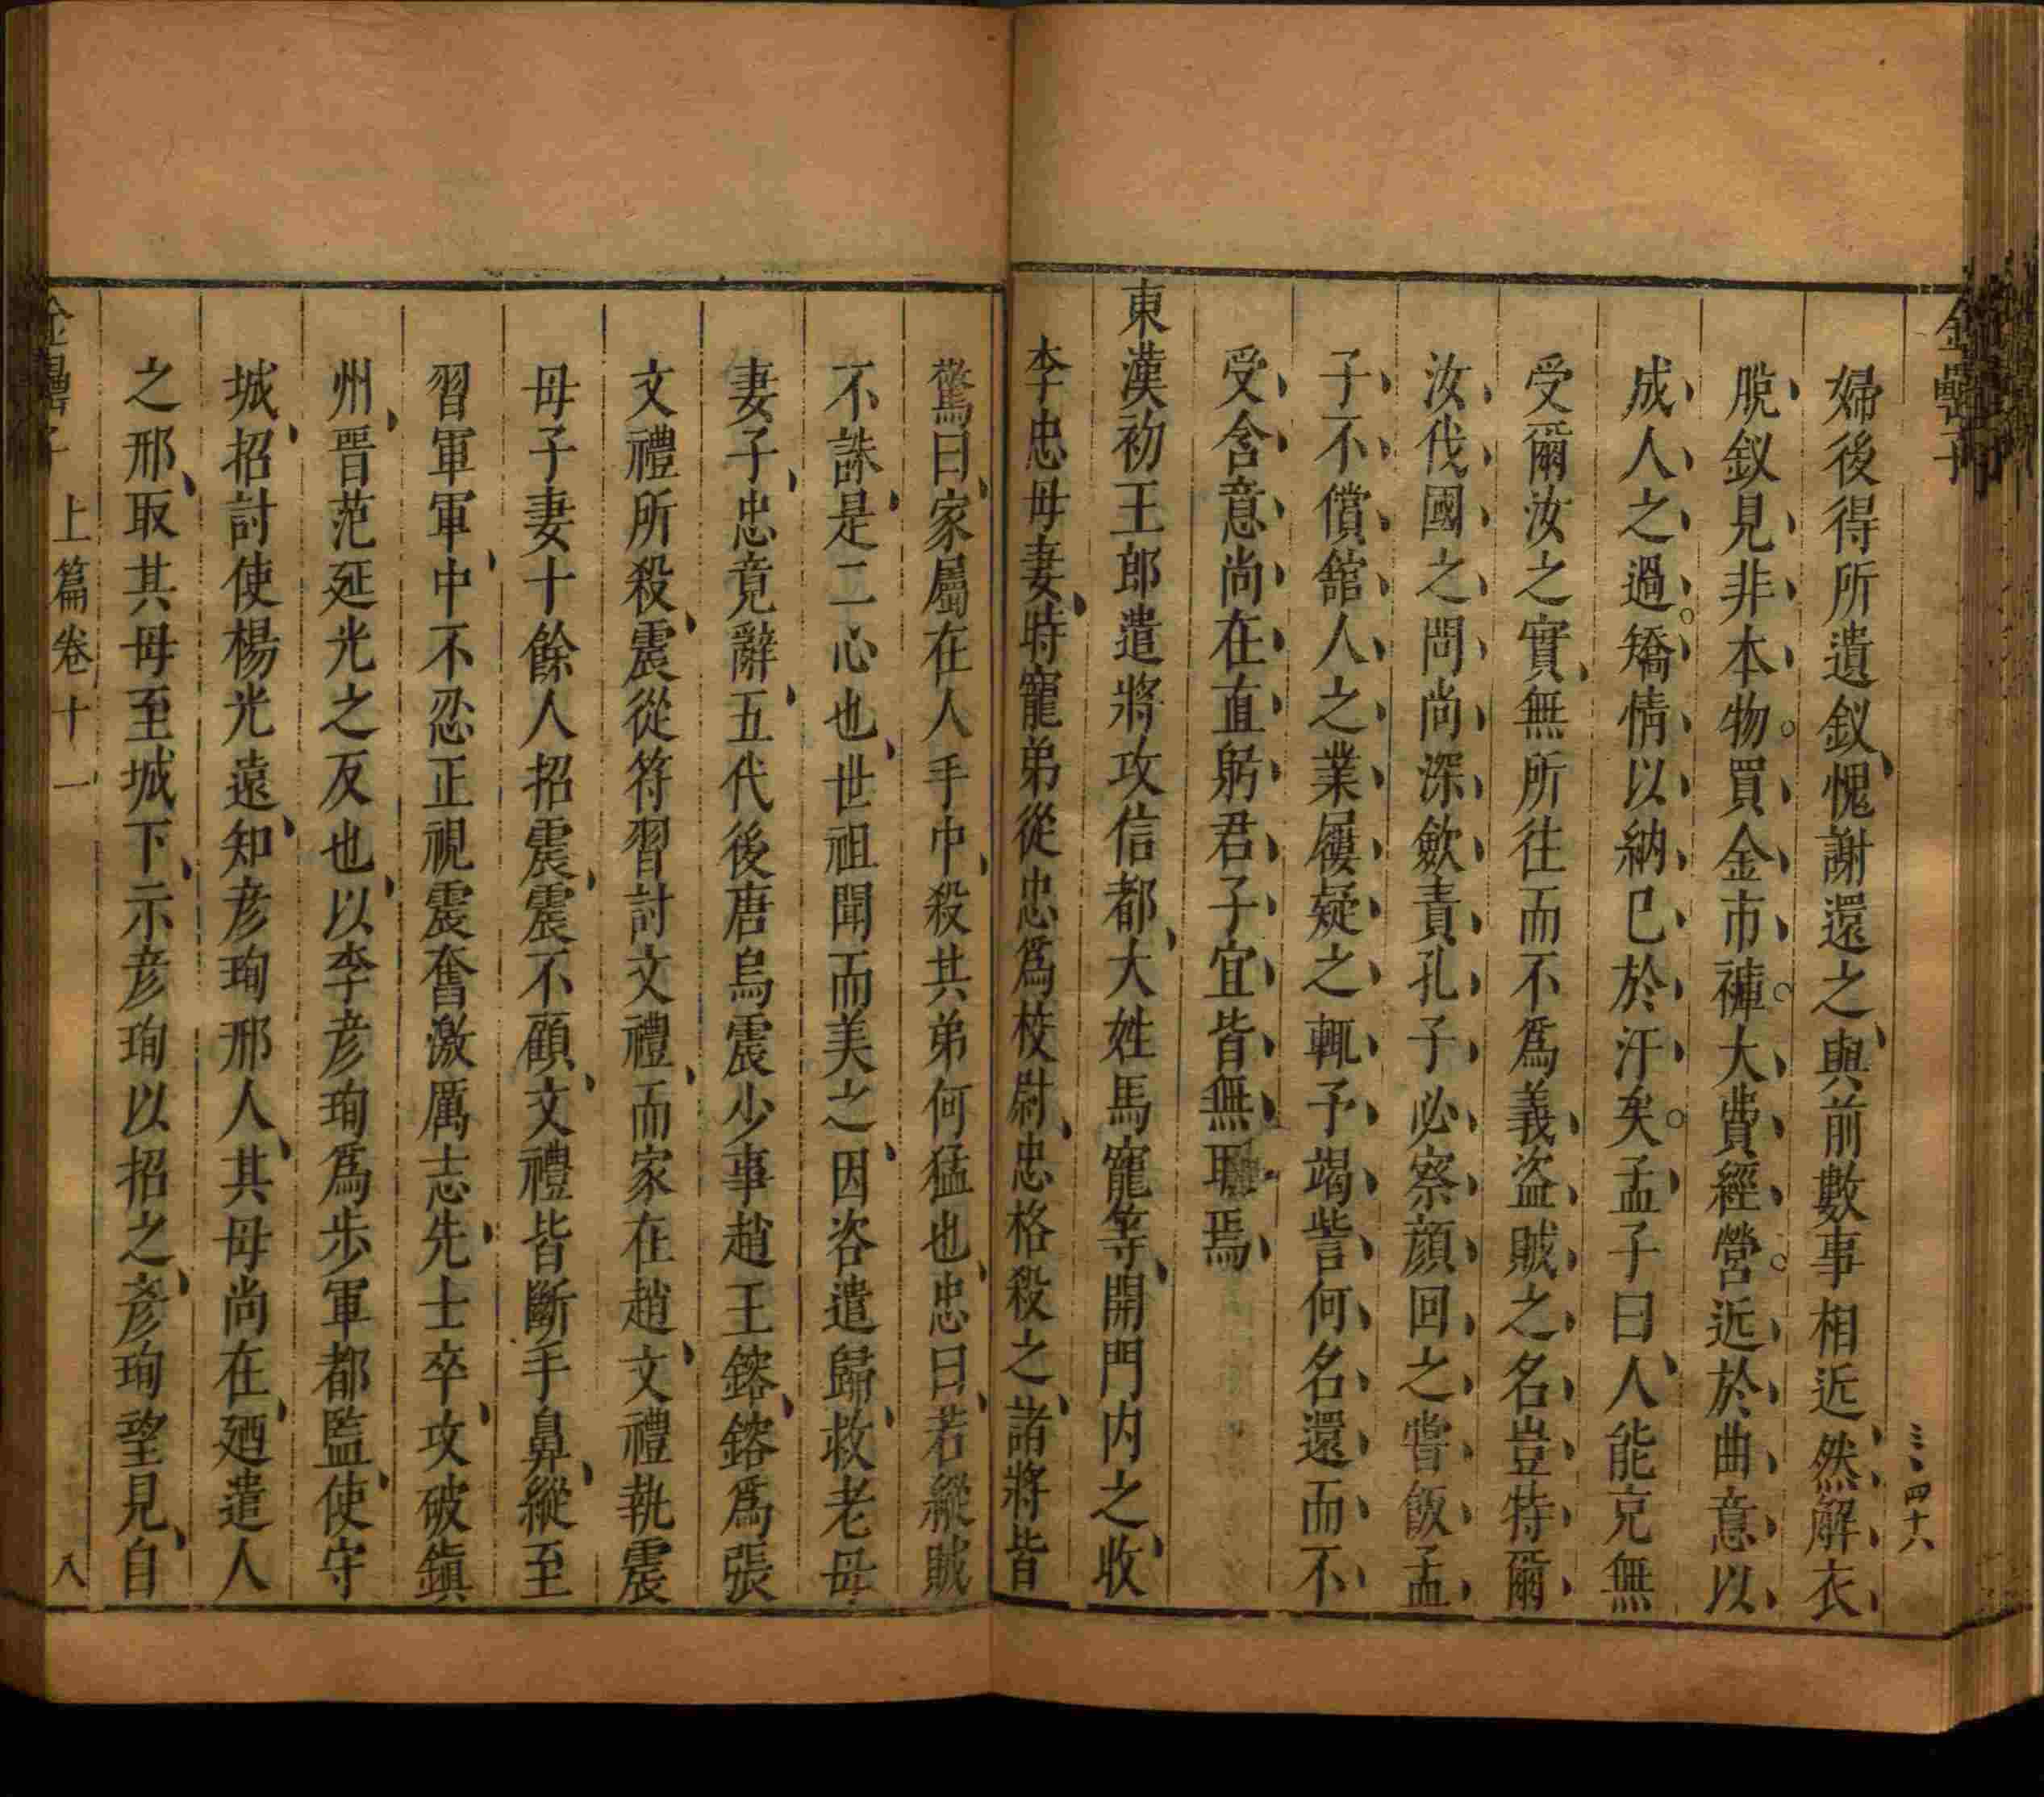 金罍子
三、四十八
婦後得所遺釵愧謝還之與前數事相近然解衣
脫釵見非本物買金市褲大費經營近於曲意以
成人之過矯情以納已於汙矣孟子曰人能克無
受爾汝之實無所往而不爲義盜賊之名豈特爾
汝伐國之問尚深歛責孔子必察顏回之嘗飯孟
子不償舘人之業屨疑之輒予竭訾何名還而不
受含意尚在直躬君子宜皆無取焉
東漢初王郎遣將攻信都大姓馬寵等開門内之收
李忠母妻時寵弟從忠爲校尉忠格殺之諸將皆
驚曰家屬在人手中殺其弟何猛也忠曰若縱賊
不誅是二心也世祖聞而美之因咨遣歸救老母
妻子忠竟辭五代後唐烏震少事趙王鎔鎔爲張
文禮所殺震從符習討文禮而家在趙文禮執震
母子妻十餘人招震震不顧文禮皆斷手鼻縱至
習軍軍中不忍正視震奮激厲志先士卒攻破鎭
州晉范延光之反也以李彦珣爲步軍都監使守
城招討使楊光遠知彦珣邢人其母尚在廼遣人
之邢取其母至城下示彦珣以招之彦珣望見自
金罍子 上篇卷十一 八